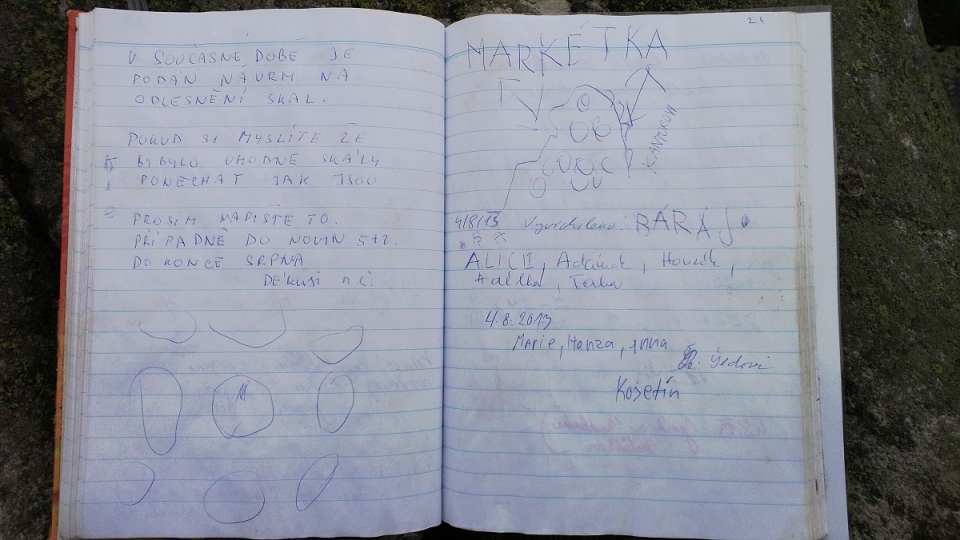 V SOUČASNÉ DOBĚ JE
PODÁN NÁVRH NA
ODLESNĚNÍ SKAL.
POKUD SI MYSLÍTE ŽE
BY BYLO VHODNÉ SKÁLY
PONECHAT JAK JSOU
PROSÍM NAPIŠTE TO.
PŘÍPADNĚ DO NOVIN 5+2.
DO KONCE SRPNA
21
MARKÉTKA
4/8/13 BÁRA J.
ALICE, Honzík,
Adélka, Terka
4.8.2013
Marie, Honza, Anna
Kojetín